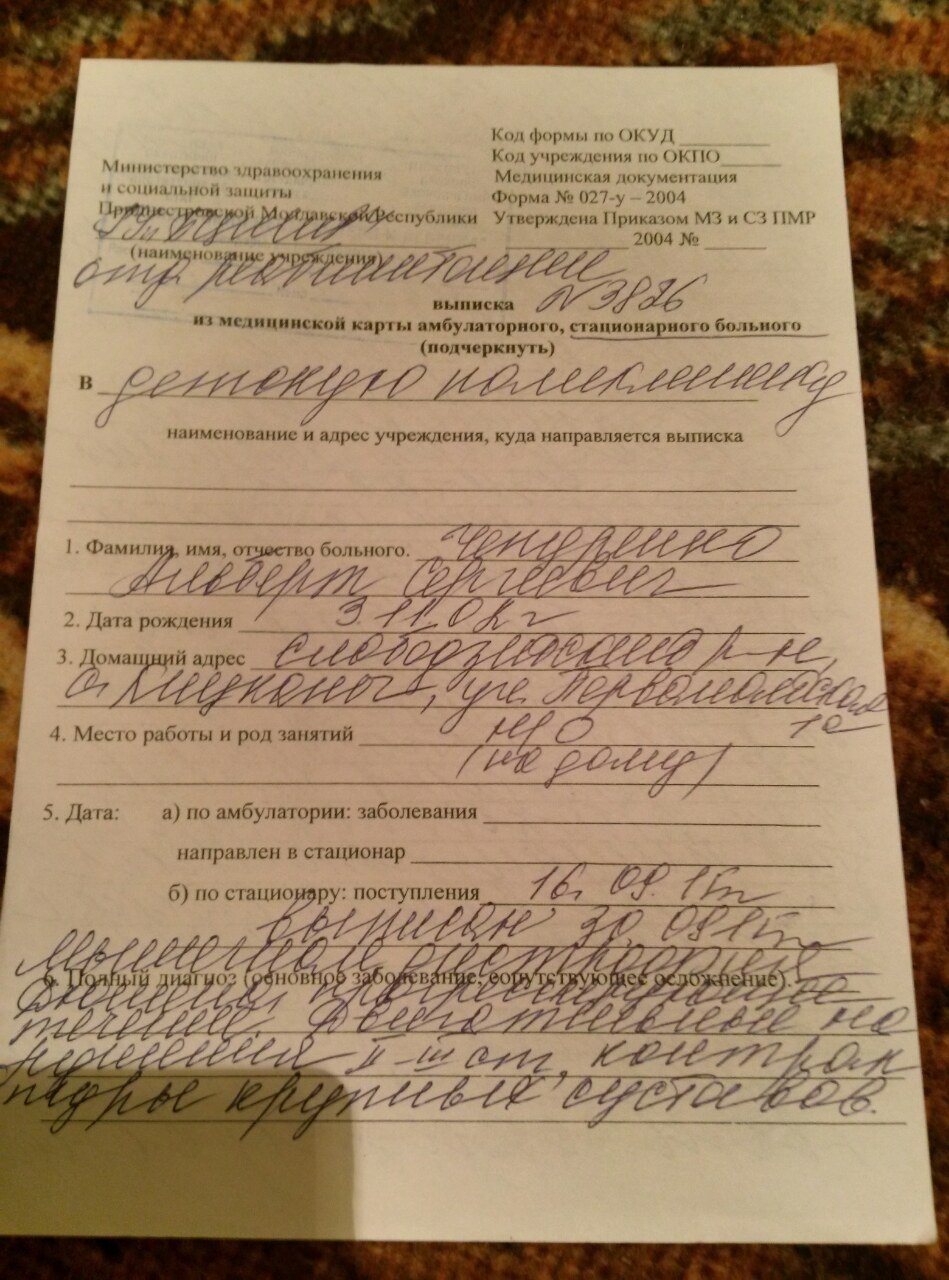 Код формы по ОКУД
Код учреждения по ОКПО
Медицинская документация
Форма № 027-у – 2004
Утверждена Приказом МЗ и СЗ ПМР
2004 №
Министерство здравоохранения
и социальной защиты
Приднестровской Молдавской Республики
(наименование учреждения)
отд. реабилитации
№ 3876
выписка
из медицинской карты амбулаторного, стационарного больного
(подчеркнуть)
В детскую поликлинику
наименование и адрес учреждения, куда направляется выписка
1. Фамилия, имя, отчество больного.
Альберт Сергеевич
2. Дата рождения 3.11.
3. Домашний адрес Слободзейский р-н,
с. Кицканы, ул. Первомайская
1а
4. Место работы и род занятий н/о
(на дому)
5. Дата: а) по амбулатории: заболевания
направлен в стационар
б) по стационару: поступления 16. 09. 15г
выписан 30. 09 15г
6. Полный диагноз (основное заболевание, сопутствующее осложнение).
Мышечная дистрофия
Дюшенна, прогрессирующее
течение. Двигательные на
рушения II-III ст, контрак
туры крупных суставов.